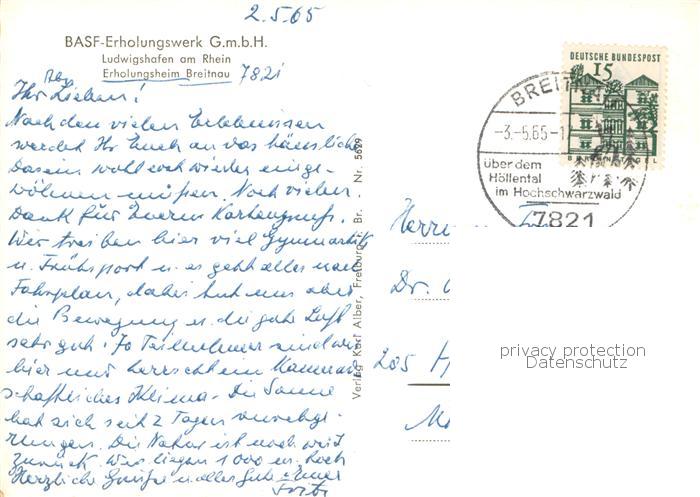 2.5.65
BASF-Erholungswerk G.m.b.H.
Ludwigshafen am Rhein
Erholungsheim Breitnau 7821
Ihr Lieben!
Nach den vielen Erlebnissen
werdet Ihr Euch an das häusliche
Dasein wohl erst wieder einge-
wöhnen müssen. Noch vielen
Dank für Euern Kartengruß.
Wir treiben hier viel Gymnastik
u. Frühsport u. es geht alles nach
Fahrplan, dabei tut uns aber
die Bewegung u. die gute Luft
sehr gut. 70 Teilnehmer sind wir
hier und herrscht ein Kamerad-
schaftliches Klima. Die Sonne
hat sich seit 2 Tagen durchge-
rungen. Die Natur ist noch weit
zurück. Wir liegen 1000 m hoch
Herzliche Grüße u. alles Gute Euer
Fritz
Verlag Karl Alber, Freiburg i. Br. Nr. 5629
DEUTSCHE BUNDESPOST
15
BREITNAU
-3.-5.65-1
über dem
Höllental
im Hochschwarzwald
7821
Herrn
Dr.
205 H
privacy protection
Datenschutz